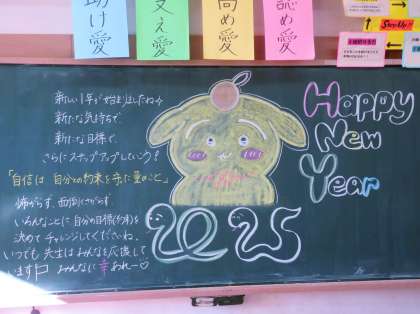 助け愛
支え愛
高め愛
認め愛
Step Up!!
新しい1年が始まりましたね
新たな気持ちで、
新たな目標で、
さらにステップアップしていこう!
「自信は 自分との約束を守った量のこと」
怖がらず、面倒くさがらず、
いろんなことに自分の目標(約束)を
決めて チャレンジしてくださいね。
いつでも先生はみんなを応援して
います みんなに幸あれー♡
Happy
New
Year
2025